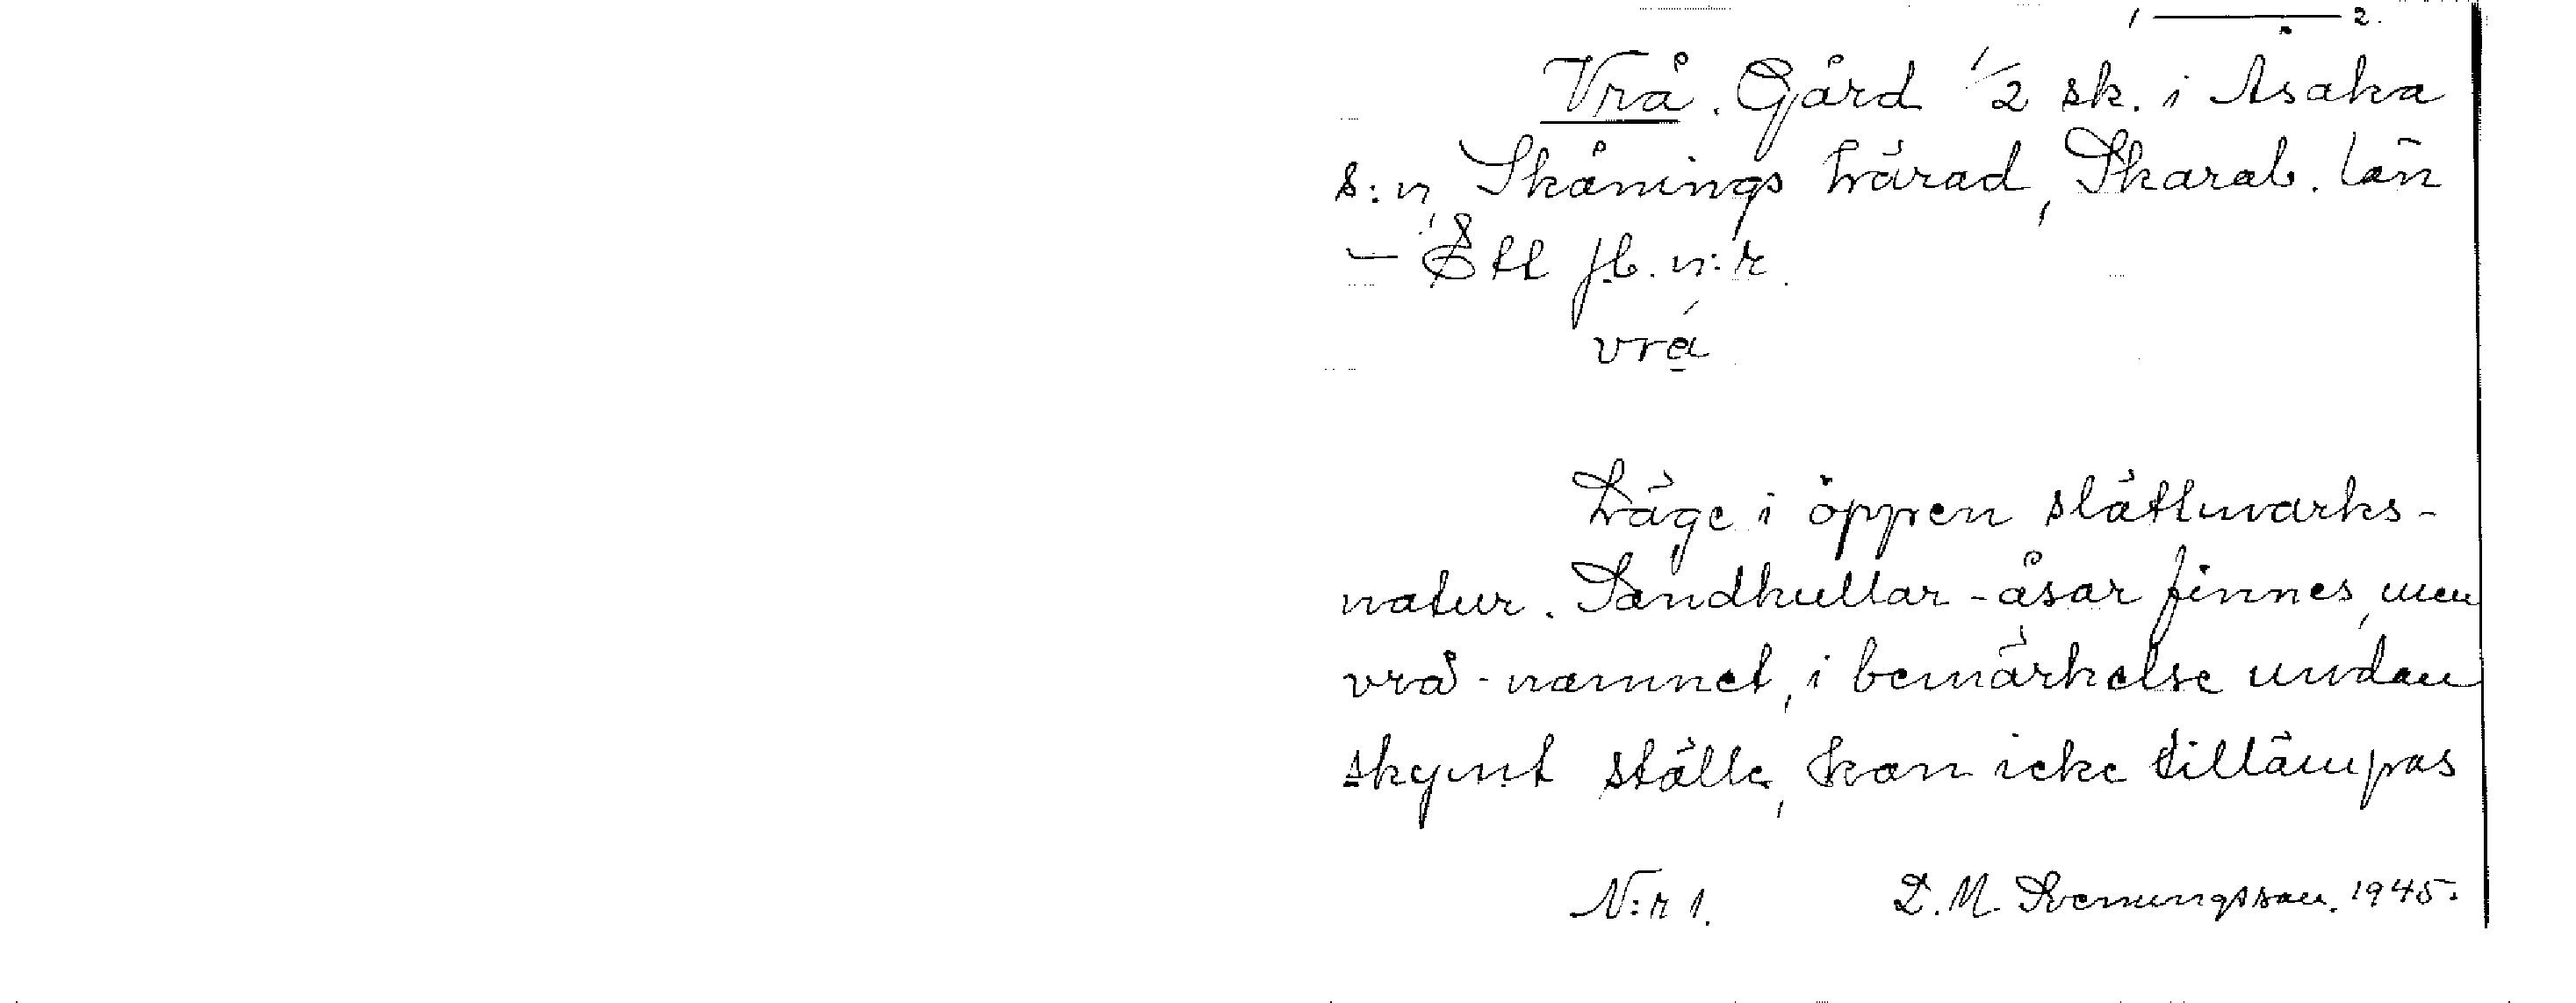 1 ——— 2.
Vrå. Gård 1/2 sk. i Åsaka
s:n, Skånings härad, Skarab. län
— Ett jb. n:r.
vrá
Läge i öppen slättmarks-
natur. Sandkullar - åsar finnes, men
vrå - namnet, i bemärkelse undan
skymt ställe, kan icke tillämpas
N:r 1. D. M. Svenungsson. 1945.